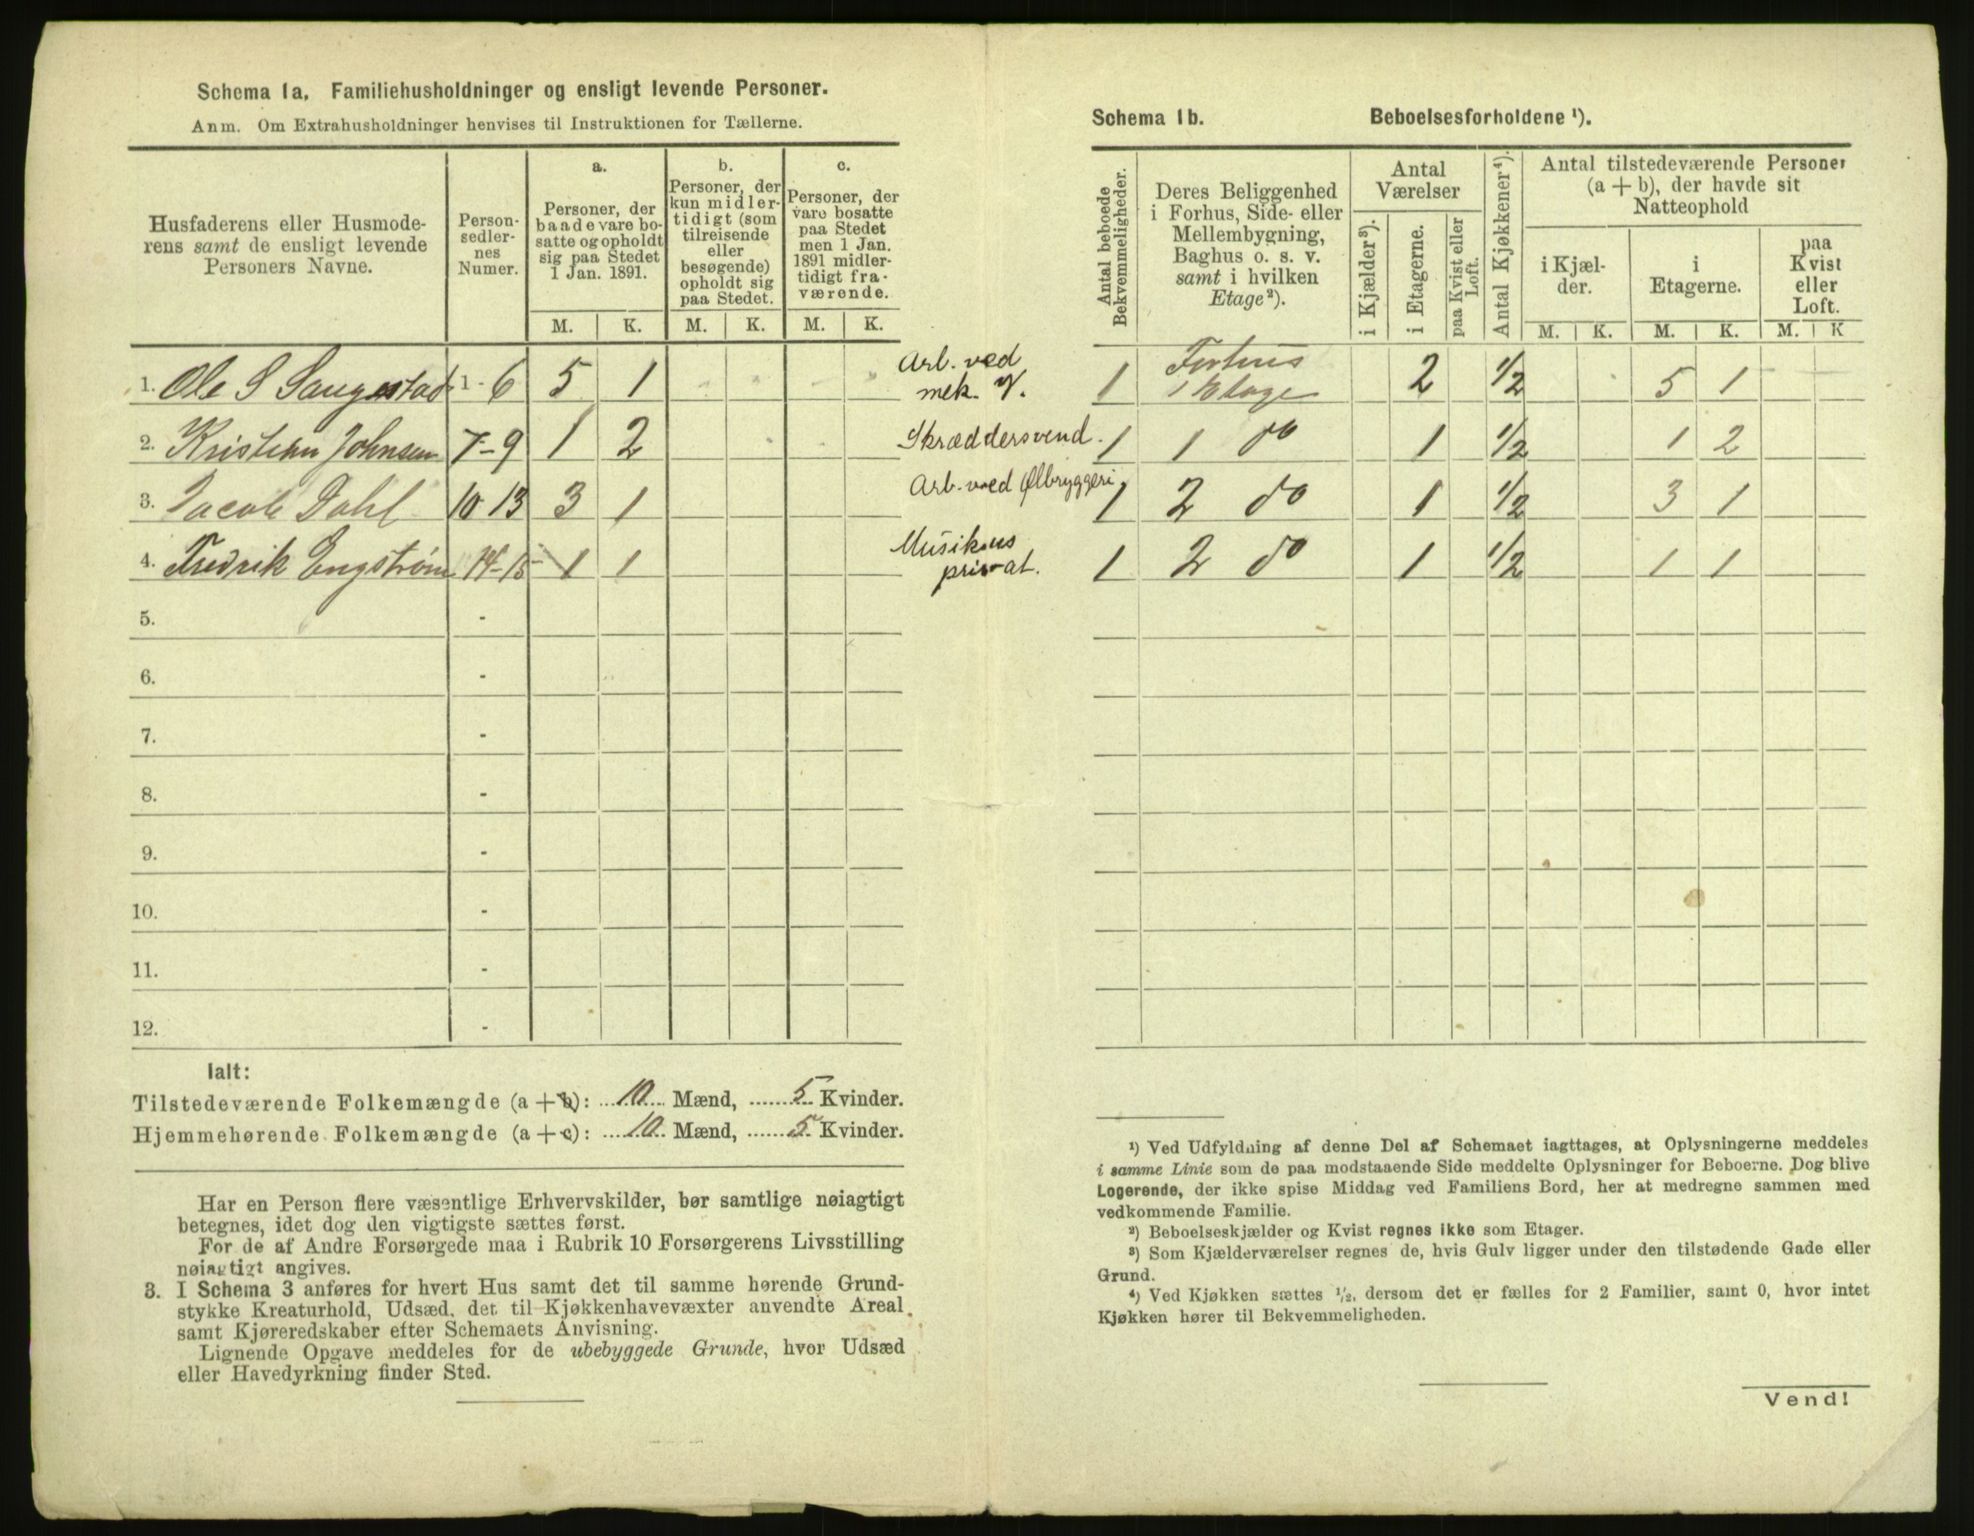 Schema 1a. Familiehusholdninger og ensligt levende Personer.
Anm. Om Extrahusholdninger henvises til Instruktionen for Tællerne.
Husfaderens eller Husmode-
rens samt de ensligt levende
Personers Navne.
Person-
sedler-
nes
Numer.
a.
Personer, der
baade vare bo-
satte og opholdt
sig paa Stedet
1 Jan. 1891.
b.
Personer, der
kun midler-
tidigt (som
tilreisende
eller
besøgende)
opholdt sig
paa Stedet.
c.
Personer, der
vare bosatte
paa Stedet
men 1 Jan.
1891 midler-
tidigt fra-
værende.
M. K. M. K. M. K.
1. Ole S Saugestad 1 - 6 5 1 Arb. ved
mek. V.
2. Kristian Johnsen 7 - 9 1 2 Skræddersvend.
3. Jacob Dahl 10 13 3 1 Arb. ved Ølbryggeri
4. Fredrik Engstrøm 14 - 15 1 1 Musikus
privat.
5. -
6. -
7. -
8. -
9. -
10. -
11. -
12. -
Ialt:
Tilstedeværende Folkemængde (a + b): 10 Mænd, 5 Kvinder.
Hjemmehørende Folkemængde (a + c): 10 Mænd, 5 Kvinder.
Har en Person flere væsentlige Erhvervskilder, bør samtlige nøiagtigt
betegnes, idet dog den vigtigste sættes først.
For de af Andre Forsørgede maa i Rubrik 10 Forsørgerens Livsstilling
nøiagtigt angives.
3. I Schema 3 anføres for hvert Hus samt det til samme hørende Grund-
stykke Kreaturhold, Udsæd, det til Kjøkkenhavevæxter anvendte Areal
samt Kjøreredskaber efter Schemaets Anvisning.
Lignende Opgave meddeles for de ubebyggede Grunde, hvor Udsæd
eller Havedyrkning finder Sted.
Schema 1b. Beboelsesforholdene ¹).
Antal beboede
Bekvemmeligheder.
Deres Beliggenhed
i Forhus, Side- eller
Mellembygning,
Baghus o. s. v.
samt i hvilken
Etage²).
Antal
Værelser
i Kjælder³).
i Etagerne.
paa Kvist eller
Loft.
Antal Kjøkkener⁴).
Antal tilstedeværende Personer
(a + b), der havde sit
Natteophold
i Kjæl-
der.
i
Etagerne.
paa
Kvist
eller
Loft.
M. K. M. K. M. K
1 Forhus
1 Etage 2 1/2 5 1
1 1 do 1 1/2 1 2
1 2 do 1 1/2 3 1
1 2 do 1 1/2 1 1
¹) Ved Udfyldning af denne Del af Schemaet iagttages, at Oplysningerne meddeles
i samme Linie som de paa modstaaende Side meddelte Oplysninger for Beboerne. Dog blive
Logerende, der ikke spise Middag ved Familiens Bord, her at medregne sammen med
vedkommende Familie.
²) Beboelseskjælder og Kvist regnes ikke som Etager.
³) Som Kjælderværelser regnes de, hvis Gulv ligger under den tilstødende Gade eller
Grund.
⁴) Ved Kjøkken sættes ½, dersom det er fælles for 2 Familier, samt 0, hvor intet
Kjøkken hører til Bekvemmeligheden.
Vend!